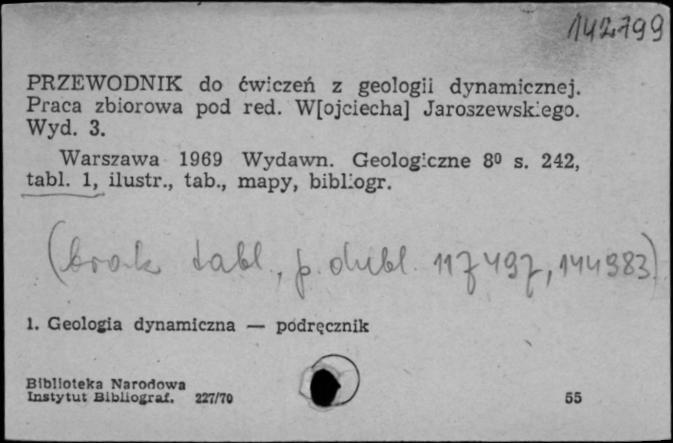 142799
PRZEWODNIK do ćwiczeń z geologii dynamicznej.
Praca zbiorowa pod red. W[ojciecha] Jaroszewskiego.
Wyd. 3.
Warszawa 1969 Wydawn. Geologiczne 8⁰ s. 242,
tabl. 1, ilustr., tab., mapy, bibliogr.
(brak tabl., p. dubl. 117497, 144983)
1. Geologia dynamiczna — podręcznik
Biblioteka Narodowa
Instytut Bibliograf. 227/70 55